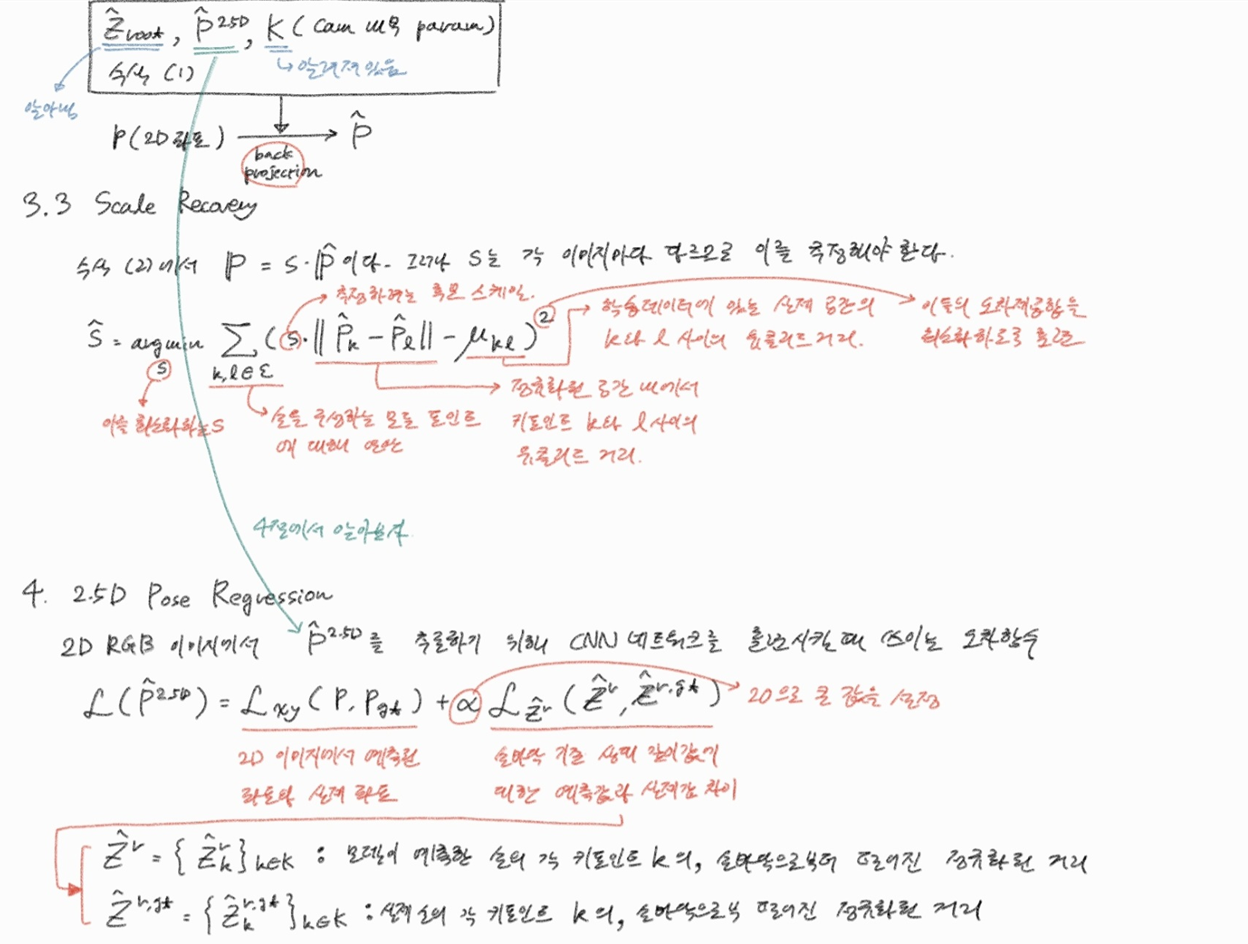 Ẑroot, P̂²·⁵ᴰ, K (Cam 내부 param)
수식 (1)
알려져 있음
알아냄
P(2D 좌표) → P̂
back
projection
3.3 Scale Recovery
수식 (2)에서 P = s·P̂ 이다. 그러나 S는 각 이미지마다 다르므로 이를 측정해야 한다.
추정하려는 후보 스케일.
학습데이터에 있는 실제 공간의
k와 l 사이의 유클리드 거리.
이들의 오차제곱합을
최소화하도록 훈련
Ŝ = argmin Σ (s·||P̂k - P̂l|| - μkl)²
s k,l∈ε
이를 최소화하는 S
손을 구성하는 모든 포인트
에 대해 연산
정규화된 공간 내에서
키포인트 k와 l 사이의
유클리드 거리.
4절에서 알아보자.
4. 2.5D Pose Regression
2D RGB 이미지에서 P̂²·⁵ᴰ를 추론하기 위해 CNN 네트워크를 훈련시킬 때 쓰이는 오차함수
L(P̂²·⁵ᴰ) = Lxy(P, Pgt) + α LẐʳ(Ẑʳ, Ẑʳ·ᵍᵗ)
20으로 큰 값을 설정
2D 이미지에서 예측된
좌표와 실제 좌표
손바닥 기준 상대 깊이값에
대한 예측값과 실제값 차이
Ẑʳ = {Ẑʳk}k∈K : 모델이 예측한 손의 각 키포인트 k의, 손바닥으로부터 떨어진 정규화된 거리
Ẑʳ·ᵍᵗ = {Ẑʳ·ᵍᵗk}k∈K : 실제 손의 각 키포인트 k의, 손바닥으로부 떨어진 정규화된 거리